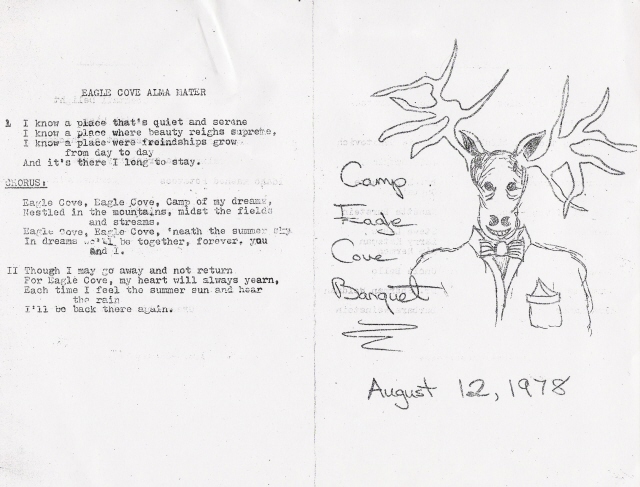 EAGLE COVE ALMA MATER
I I know a place that's quiet and serene
I know a place where beauty reighs supreme,
I know a place were freindships grow
from day to day
And it's there I long to stay.
CHORUS:
Eagle Cove, Eagle Cove, Camp of my dreams,
Nestled in the mountains, midst the fields
and streams.
Eagle Cove, Eagle Cove, 'neath the summer sky
In dreams we'll be together, forever, you
and I.
II Though I may go away and not return
For Eagle Cove, my heart will always yearn,
Each time I feel the summer sun and hear
the rain
I'll be back there again.
Camp
Eagle
Cove
Banquet
August 12, 1978